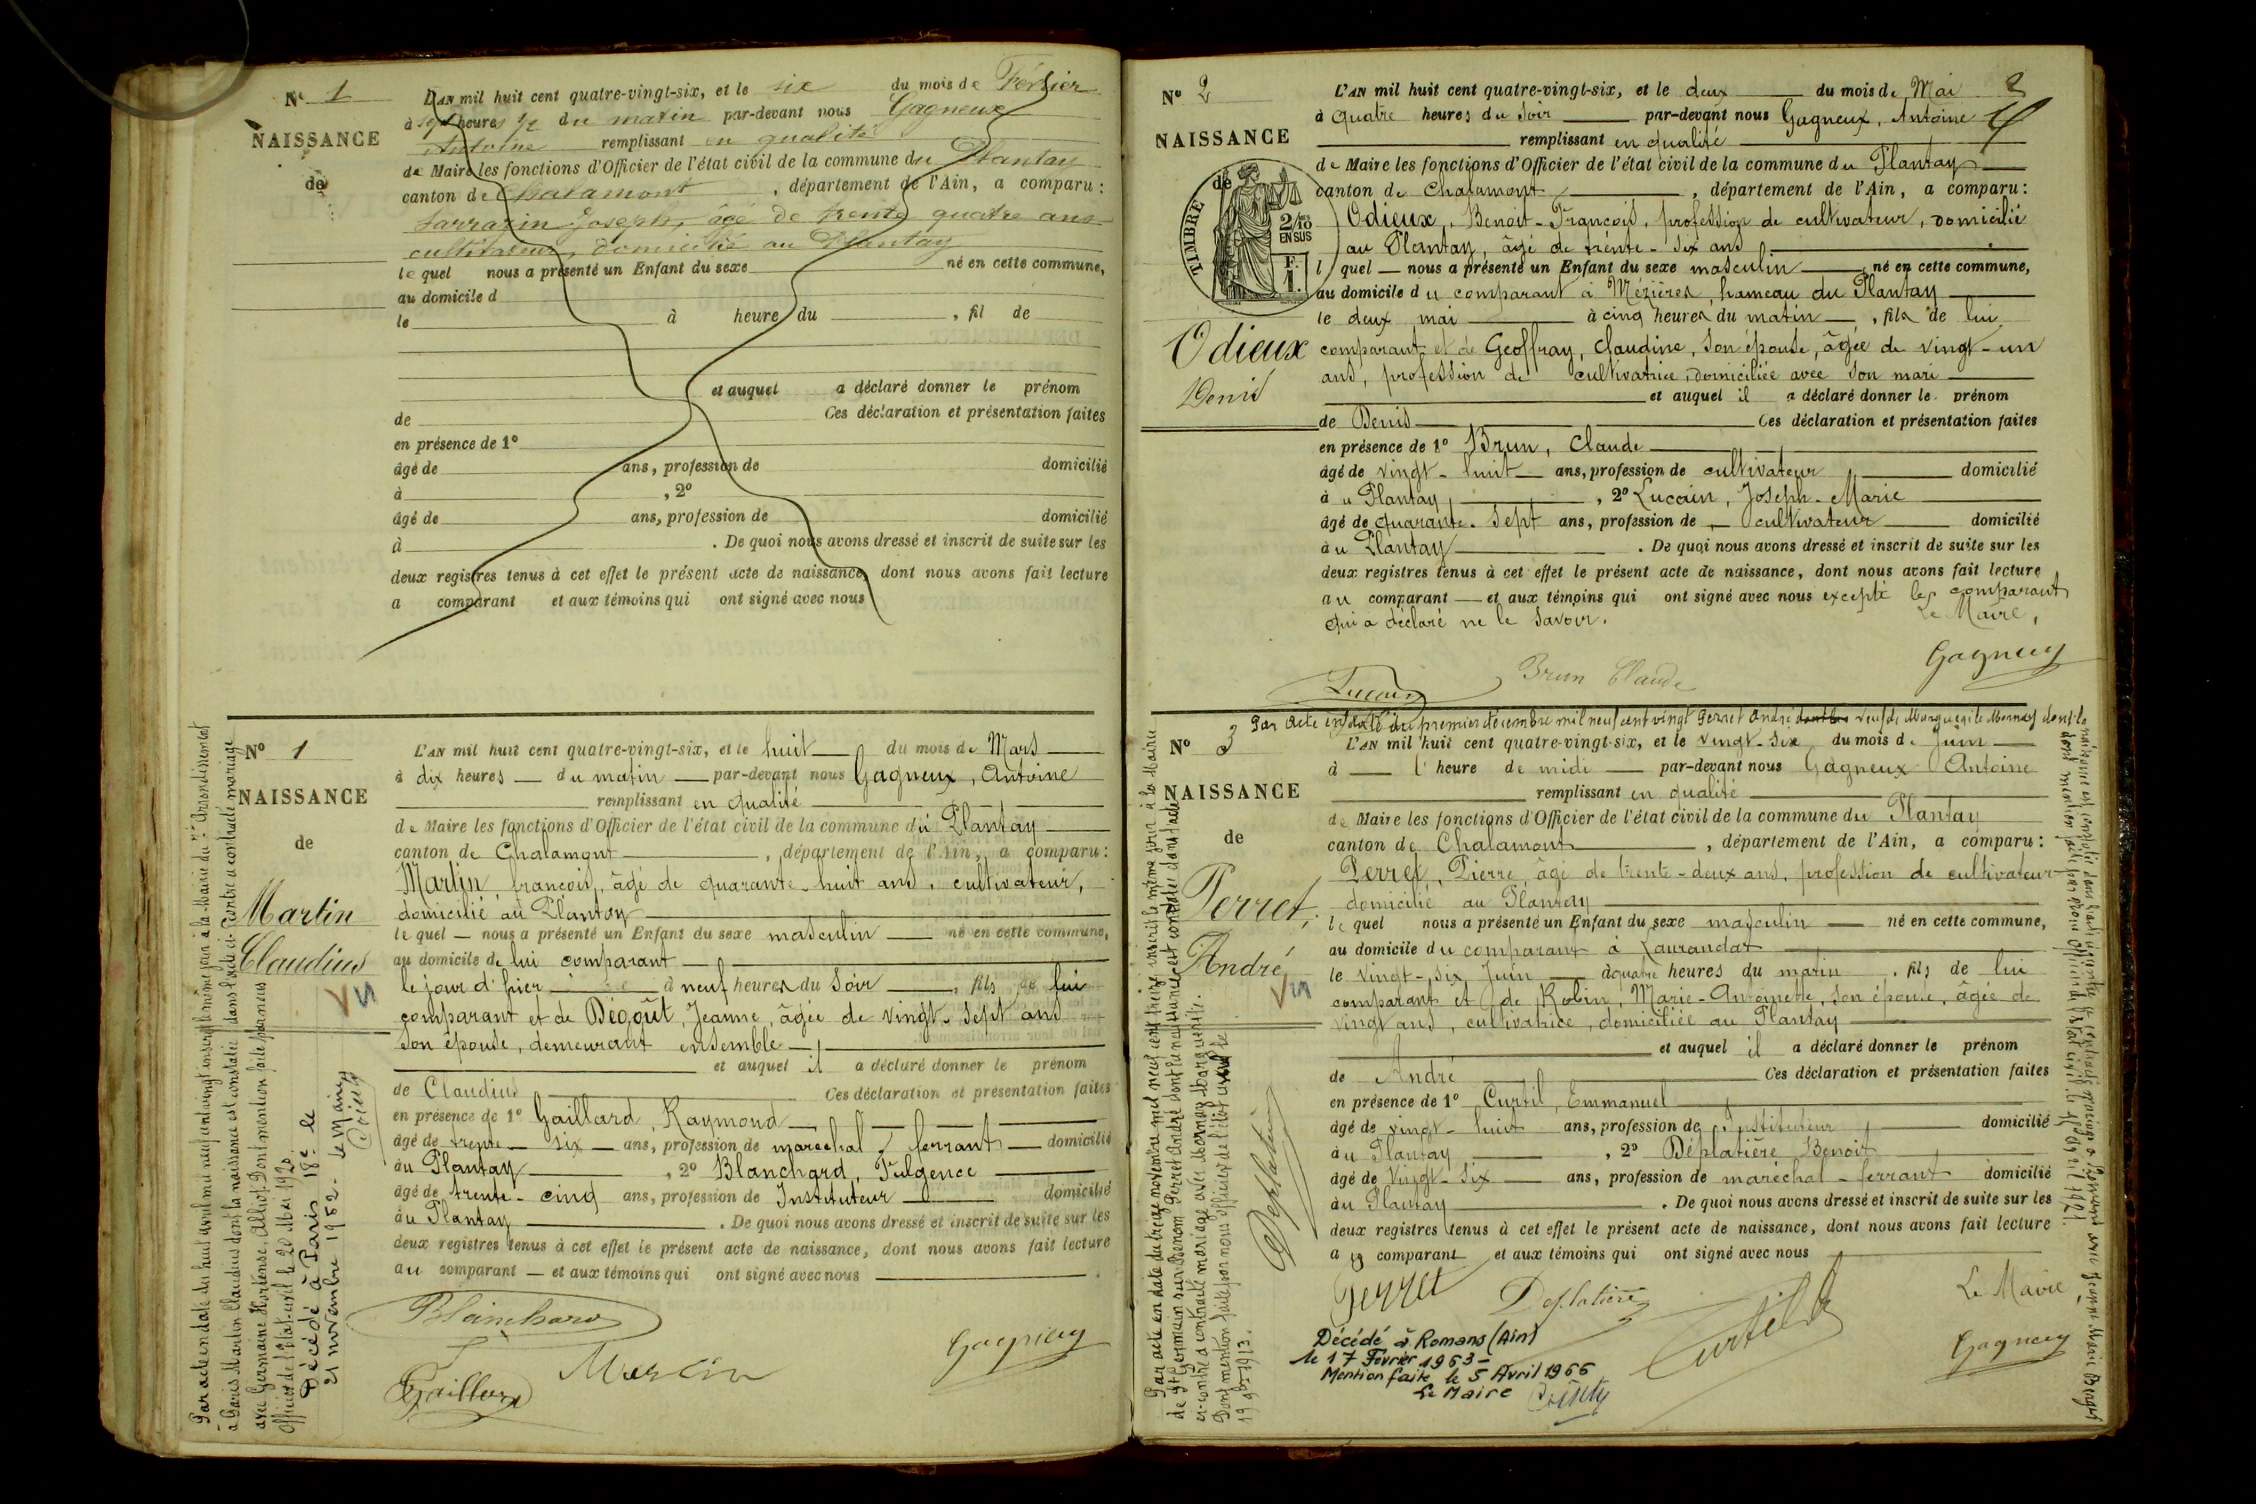 N° 1
NAISSANCE
de
L'AN mil huit cent quatre-vingt-six, et le six du mois de Février
à sept heures 1/2 du matin par-devant nous Gagneux
Antoine remplissant en qualité
de Maire les fonctions d'Officier de l'état civil de la commune du Plantay
canton de Chalamont, département de l'Ain, a comparu:
Sarrazin Joseph, âgé de trente quatre ans
cultivateur, domicilié au Plantay
le quel nous a présenté un Enfant du sexe né en cette commune,
au domicile d
le à heure du , fil de
et auquel a déclaré donner le prénom
de Ces déclaration et présentation faites
en présence de 1°
âgé de ans, profession de domicilié
à , 2°
âgé de ans, profession de domicilié
à . De quoi nous avons dressé et inscrit de suite sur les
deux registres tenus à cet effet le présent acte de naissance, dont nous avons fait lecture
a comparant et aux témoins qui ont signé avec nous
N° 1
NAISSANCE
de
Martin
Claudius
Vu
L'AN mil huit cent quatre-vingt-six, et le huit du mois de Mars
à dix heures du matin par-devant nous Gagneux, Antoine
remplissant en qualité
de Maire les fonctions d'Officier de l'état civil de la commune du Plantay
canton de Chalamont, département de l'Ain, a comparu:
Martin françois, âgé de quarante-huit ans, cultivateur,
domicilié au Plantay
le quel nous a présenté un Enfant du sexe masculin né en cette commune,
au domicile de lui comparant
le jour d'hier à neuf heures du soir, fils de lui
comparant et de Dégoût, Jeanne, âgée de vingt-sept ans
son épouse, demeurant ensemble
et auquel il a déclaré donner le prénom
de Claudius Ces déclaration et présentation faites
en présence de 1° Gaillard, Raymond
âgé de trente-six ans, profession de marechal ferrant domicilié
au Plantay, 2° Blanchard, Fulgence
âgé de trente-cinq ans, profession de Instituteur domicilié
au Plantay. De quoi nous avons dressé et inscrit de suite sur les
deux registres tenus à cet effet le présent acte de naissance, dont nous avons fait lecture
au comparant et aux témoins qui ont signé avec nous
Blanchard
Gaillard
Martin
Gagneux
Par acte en date du huit avril mil neuf cent vingt inscrit le même jour à la Mairie du Arrondissement
à Paris Martin Claudius dont la naissance est constatée dans l'acte ci-contre a contracté mariage
avec Germaine Hortense Alliot. Dont mention faite par nous
Officier de l'Etat-civil le 20 Mai 1920.
Décédé à Paris 18e le
21 novembre 1952. Le Maire
N° 2
NAISSANCE
de
TIMBRE
2/10
EN SUS
F.
1.
Odieux
Denis
L'AN mil huit cent quatre-vingt-six, et le deux du mois de Mai 2
à quatre heures du soir par-devant nous Gagneux, Antoine
remplissant en qualité
de Maire les fonctions d'Officier de l'état civil de la commune du Plantay
canton de Chalamont, département de l'Ain, a comparu:
Odieux, Benoit-François, profession de cultivateur, domicilié
au Plantay, âgé de trente-six ans
l quel nous a présenté un Enfant du sexe masculin, né en cette commune,
au domicile du comparant à Mézières, hameau du Plantay
le deux mai à cinq heures du matin, fils de lui
comparant et de Geoffray, Claudine, son épouse, âgée de vingt-un
ans, profession de cultivatrice, domiciliée avec son mari
et auquel il a déclaré donner le prénom
de Denis Ces déclaration et présentation faites
en présence de 1° Brun, Claude
âgé de vingt-huit ans, profession de cultivateur domicilié
à u Plantay, 2° Lucain, Joseph-Marie
âgé de quarante-sept ans, profession de cultivateur domicilié
au Plantay. De quoi nous avons dressé et inscrit de suite sur les
deux registres tenus à cet effet le présent acte de naissance, dont nous avons fait lecture
au comparant et aux témoins qui ont signé avec nous excepté le comparant
qui a déclaré ne le savoir.
Le Maire,
Gagneux
Lucain
Brun Claude
Par acte en date du premier décembre mil neuf cent vingt Perret André veuf de Marguerite Mornay dont la
naissance est constatée dans l'acte ci-contre a contracté mariage à Romans avec Jeanne Marie
dont mention faite par nous Officier de l'Etat civil le Avril 1921.
N° 3
NAISSANCE
de
Perret,
André
Vu
L'AN mil huit cent quatre-vingt-six, et le vingt-six du mois de Juin
à l'heure de midi par-devant nous Gagneux Antoine
remplissant en qualité
de Maire les fonctions d'Officier de l'état civil de la commune du Plantay
canton de Chalamont, département de l'Ain, a comparu:
Perret, Pierre, âgé de trente-deux ans, profession de cultivateur
domicilié au Plantay
le quel nous a présenté un Enfant du sexe masculin né en cette commune,
au domicile du comparant à Laurandat
le vingt-six Juin à quatre heures du matin, fils de lui
comparant et de Robin, Marie-Antoinette, son épouse, âgée de
vingt ans, cultivatrice, domiciliée au Plantay
et auquel il a déclaré donner le prénom
de André Ces déclaration et présentation faites
en présence de 1° Curtil, Emmanuel
âgé de vingt-huit ans, profession de Instituteur domicilié
au Plantay, 2° Déplatière Benoit
âgé de vingt-six ans, profession de maréchal-ferrant domicilié
au Plantay. De quoi nous avons dressé et inscrit de suite sur les
deux registres tenus à cet effet le présent acte de naissance, dont nous avons fait lecture
au comparant et aux témoins qui ont signé avec nous
Perret
Deplatière
Curtil
Le Maire,
Gagneux
Décédé à Romans (Ain)
le 17 Février 1963-
Mention faite le 5 Avril 1966
Le Maire
Par acte en date du treize novembre mil neuf cent treize inscrit le même jour à la Mairie
de St Germain sur Renom Perret André dont la naissance est constatée dans l'acte
ci-contre a contracté mariage avec Mornay Marguerite.
Dont mention faite par nous officier de l'état civil le
19 9bre 1913.
Deplatière